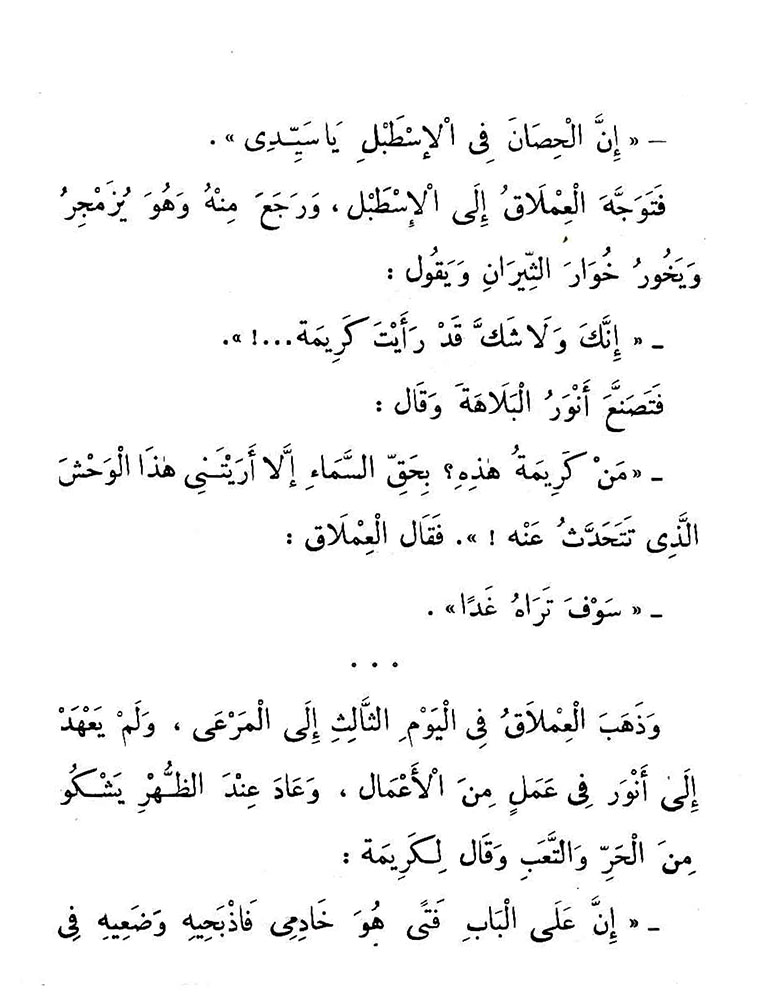 – « إِنَّ الْحِصَانَ فِى الْإِسْطَبْلِ يَا سَيِّدِى » .
فَتَوَجَّهَ الْعِمْلَاقُ إِلَى الْإِسْطَبْل ، وَرَجَعَ مِنْهُ وَهُوَ يُزَمْجِرُ
وَيَخُورُ خُوَارَ الثِّيرَانِ وَيَقُول :
– « إِنَّكَ وَلَا شَكَّ قَدْ رَأَيْتَ كَرِيمَة...! ».
فَتَصَنَّعَ أَنْوَرُ الْبَلَاهَةَ وَقَال :
– «مَنْ كَرِيمَةُ هٰذِهِ؟ بِحَقِّ السَّمَاءِ إِلَّا أَرَيْتَنِى هٰذَا الْوَحْشَ
الَّذِى تَتَحَدَّثُ عَنْه ! ». فَقَال الْعِمْلَاق :
– « سَوْفَ تَرَاهُ غَدًا» .
. . .
وَذَهَبَ الْعِمْلَاقُ فِى الْيَوْمِ الثَّالِثِ إِلَى الْمَرْعَى ، وَلَمْ يَعْهَدْ
إِلَىٰ أَنْوَر فِى عَمَلٍ مِنَ الْأَعْمَال ، وَعَادَ عِنْدَ الظُّهْرِ يَشْكُو
مِنَ الْحَرِّ وَالتَّعَبِ وَقَال لِكَرِيمَة :
– « إِنَّ عَلَى الْبَابِ فَتًى هُوَ خَادِمِى فَاذْبَحِيهِ وَضَعِيهِ فِى